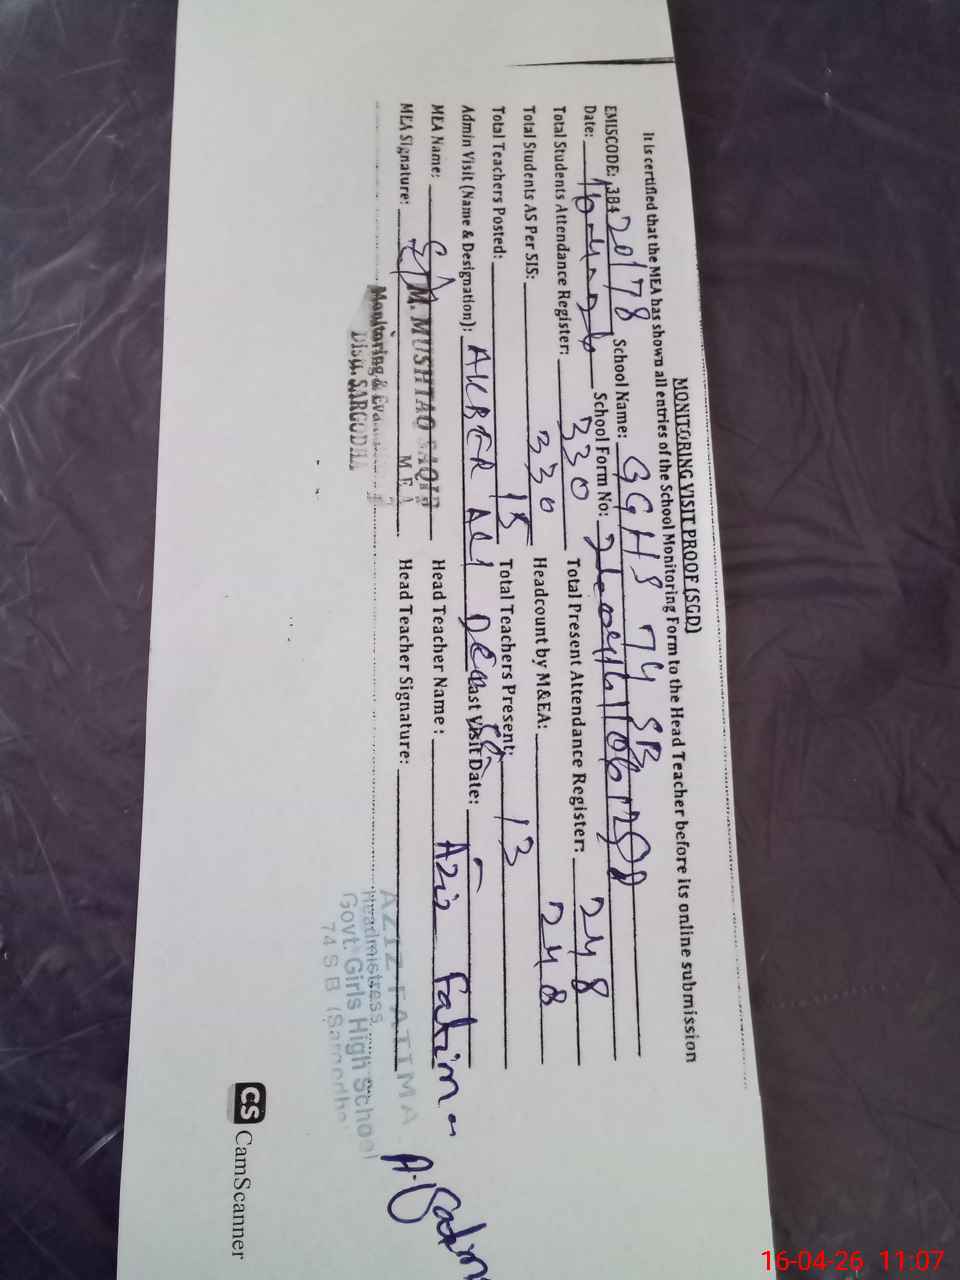 MONITORING VISIT PROOF (SGD)
It is certified that the MEA has shown all entries of the School Monitoring Form to the Head Teacher before its online submission
EMISCODE: 38420178 School Name: GGHS 74 SB
Date: 16-4-26 School Form No:
Total Students Attendance Register: 330 Total Present Attendance Register: 248
Total Students AS Per SIS: 330 Headcount by M&EA: 248
Total Teachers Posted: 15 Total Teachers Present: 13
Admin Visit (Name & Designation): AKBER ALI Last Visit Date: -
MEA Name: Head Teacher Name: Aziz Fatima
MEA Signature: Head Teacher Signature:
M. MUSHTAQ SAQIB
M E A
Monitoring &
Distt. SARGODHA
AZIZ FATIMA
Headmistress
Govt. Girls High School
74 S B (Sargodha)
CS CamScanner
16-04-26 11:07